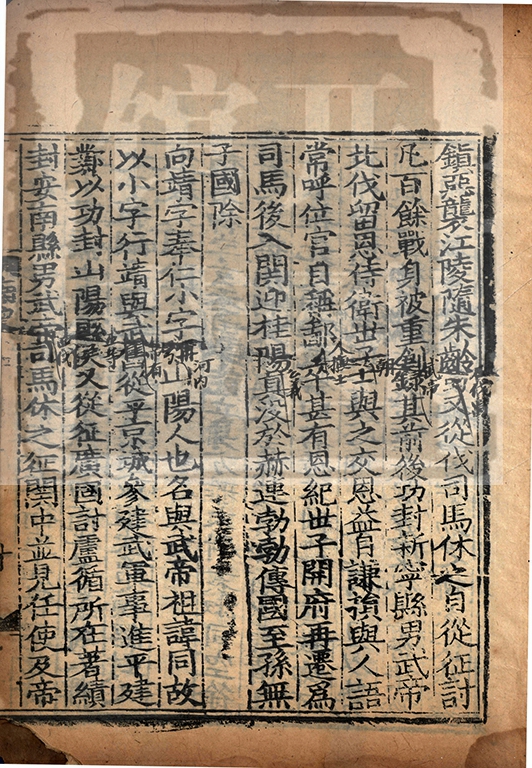 鎮惡襲江陵隨朱齡又從伐司馬休之自從征討
凢百餘戰身被重創錄其前後功封新寧縣男武帝
北伐留恩侍衛世子與之交恩益自謙損與人語
常呼位官自稱鄙人甚有恩紀世子開府再遷爲
司馬後入関迎桂陽真没於赫連勃勃傳國至孫無
子國除
向靖字奉仁小字山陽人也名與武帝祖諱同故
以小字行靖與武舊從平京城参建武軍事進平建
鄴以功封山陽縣侯又從征廣固討盧循所在著績
封安南縣男武帝司馬休之征関中並見任使及帝
河内